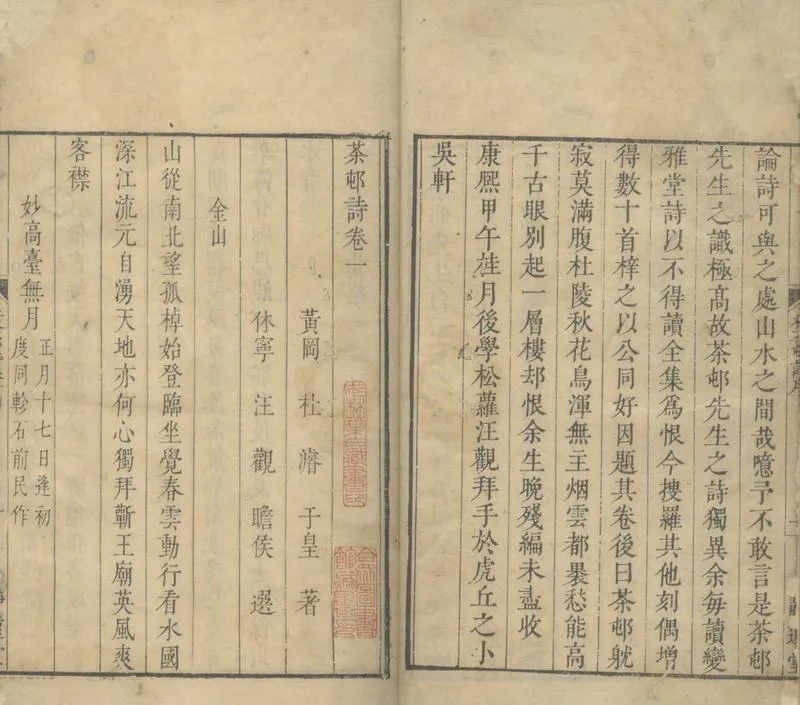 論詩可與之處山水之間哉噫予不敢言是茶邨
先生之識極髙故茶邨先生之詩獨異余每讀變
雅堂詩以不得讀全集爲恨今搜羅其他刻偶增
得數十首梓之以公同好因題其卷後曰茶邨躭
寂莫滿腹杜陵秋花鳥渾無主烟雲都褁愁能高
千古眼別起一層樓却恨余生晩殘編未盡收
康熈甲午桂月後學松蘿汪觀拜手於虎丘之小
吳軒
茶邨詩卷一
黃岡 杜濬 于皇 著
休寧 汪觀 瞻侯 選
金山
山從南北望孤棹始登臨坐覺春雲動行看水國
深江流元自湧天地亦何心獨拜蘄王廟英風爽
客襟
妙高臺無月
正月十七日逢初
度同軫石前民作